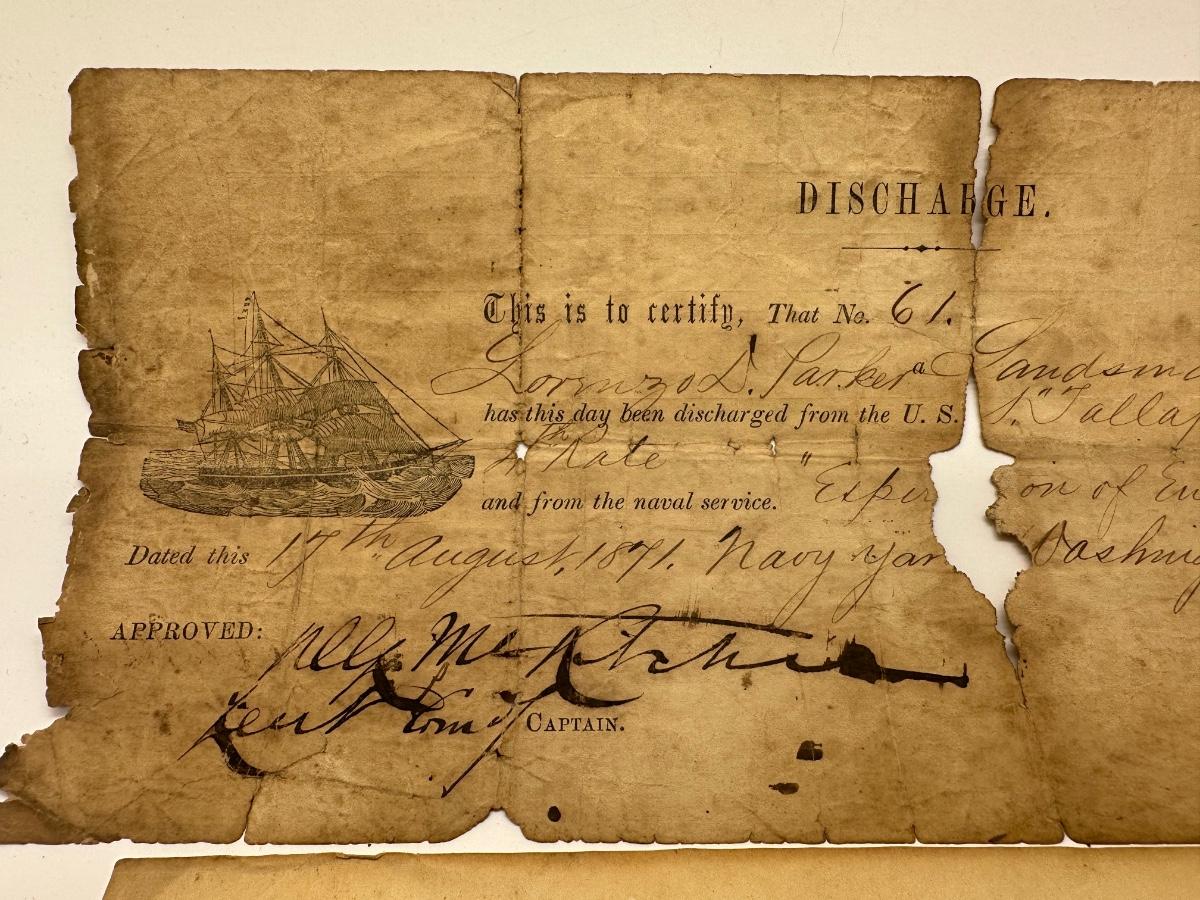 DISCHARGE.
This is to certify, That No. 61.
Lorenzo D. Parker a Landsma
has this day been discharged from the U. S. S. "Tallap
4th Rate "
and from the naval service. Expir ion of En
Dated this 17th August, 1871. Navy Yar Washing
APPROVED:
McRitchie
Lieut Comdg CAPTAIN.